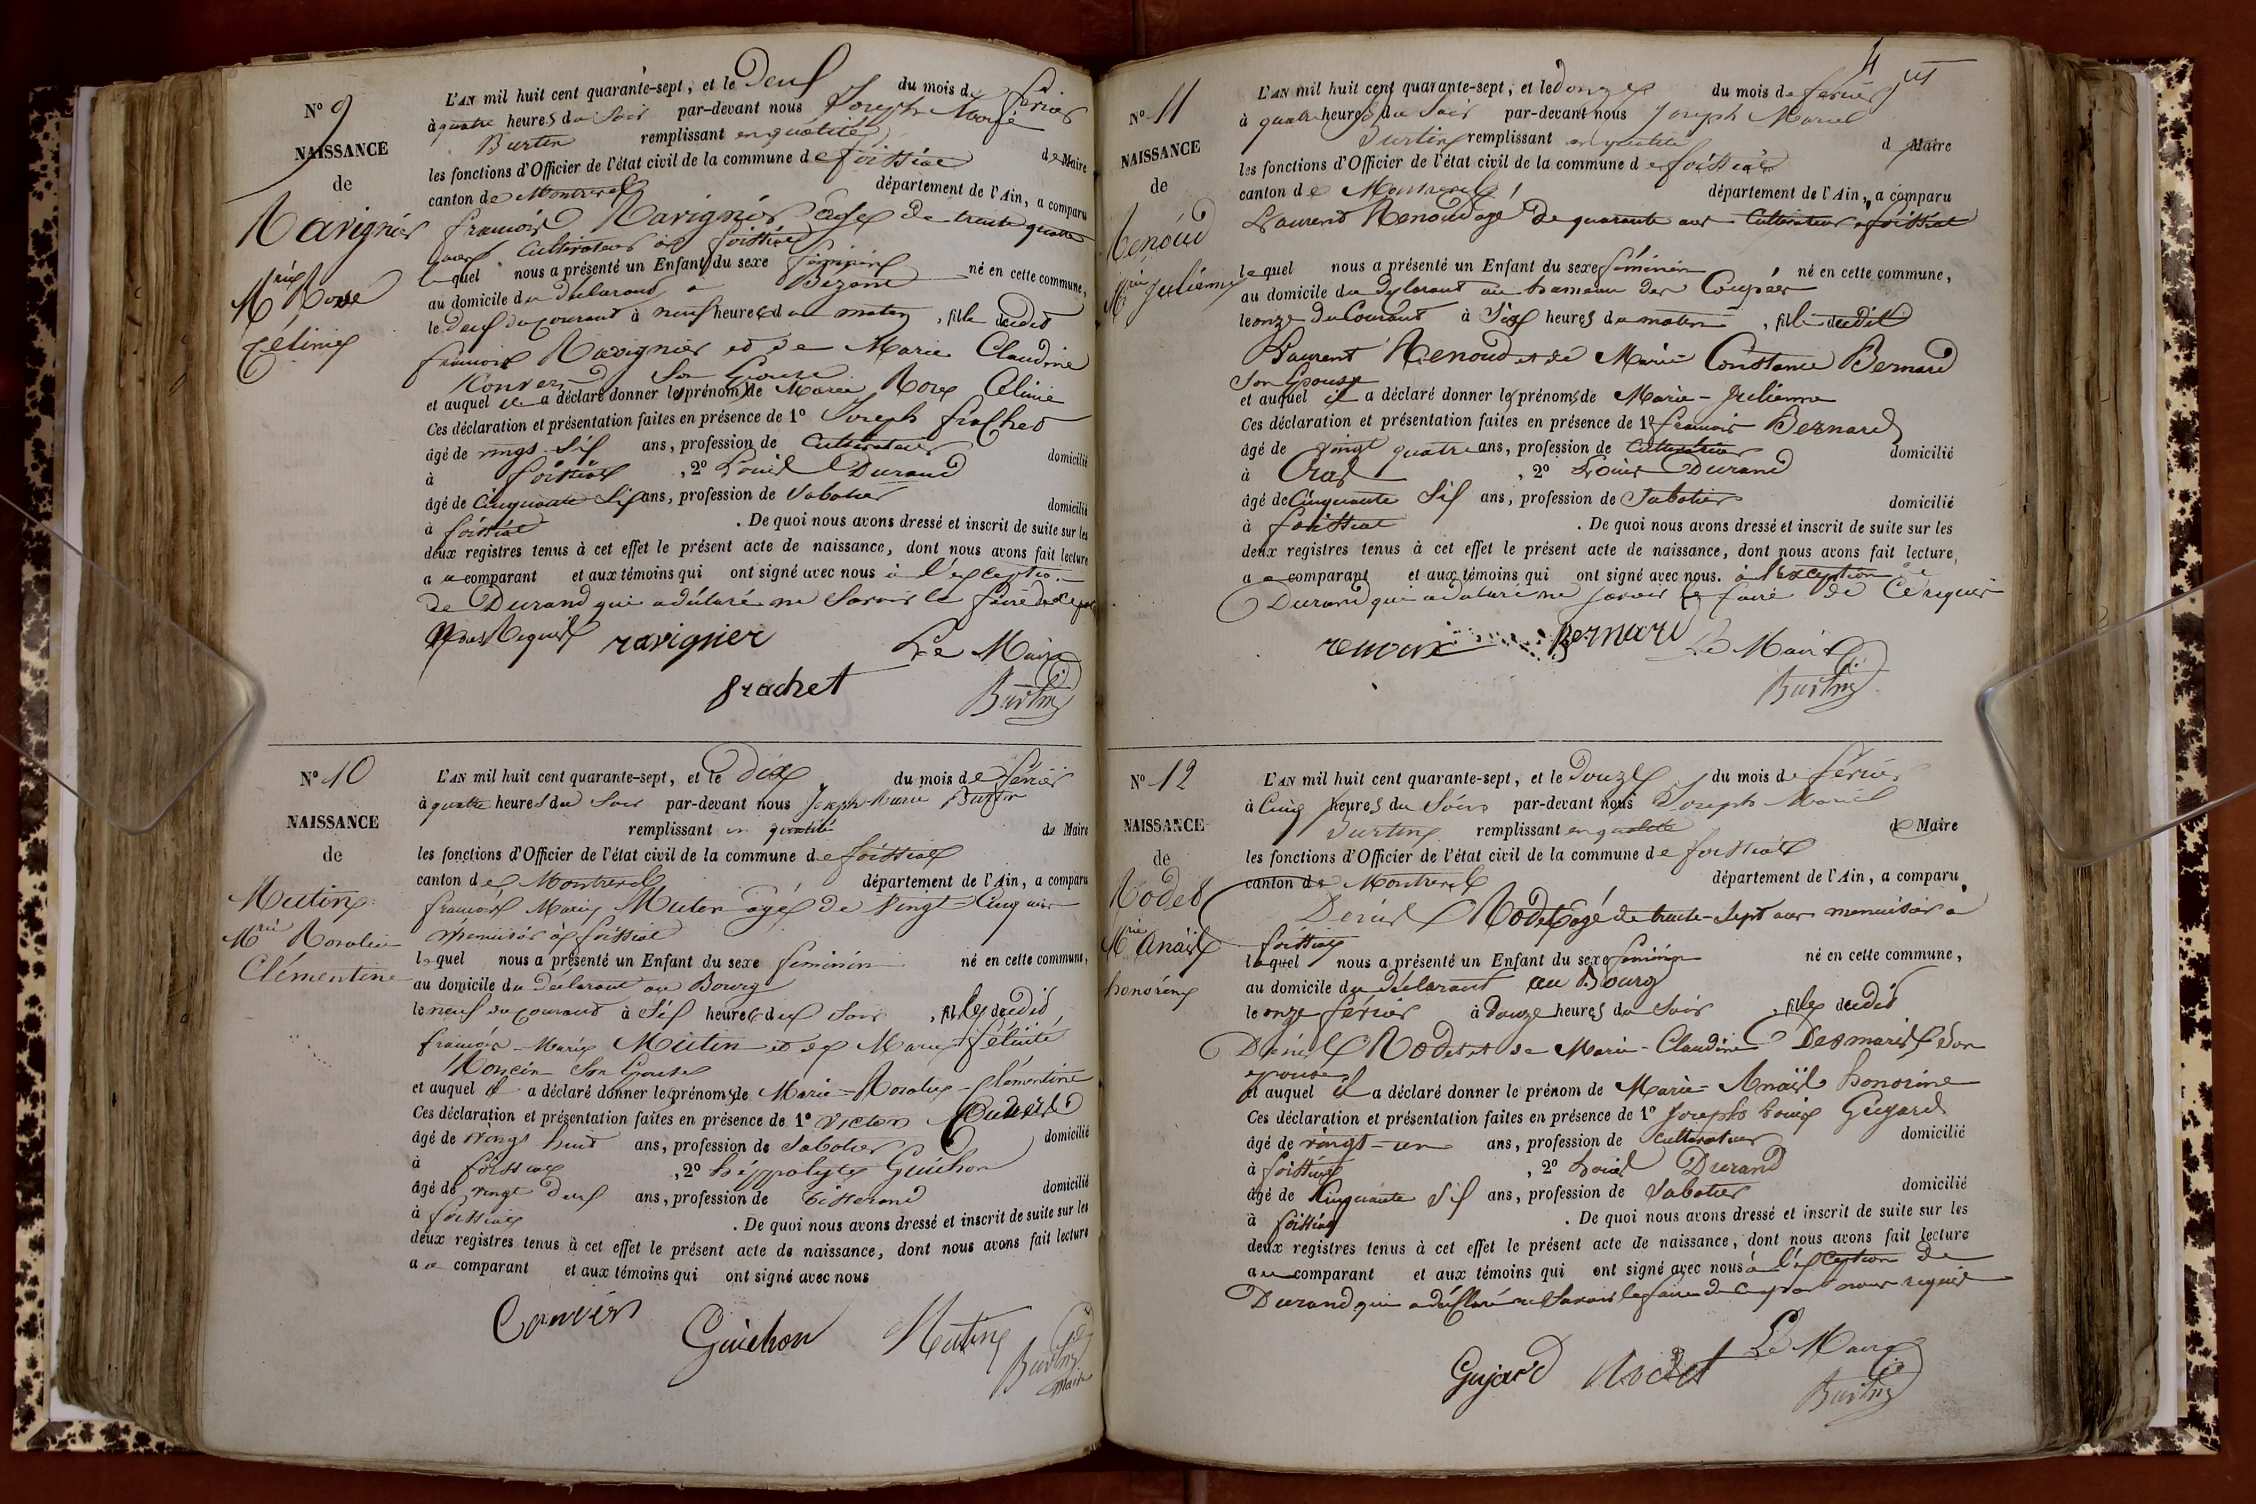 N° 9
NAISSANCE
de
Ravignier
Mrie Rose
Célinie
L'AN mil huit cent quarante-sept, et le Deux du mois de février
à quatre heures du Soir par-devant nous Joseph Marie
Burtin remplissant en qualité de Maire
les fonctions d'Officier de l'état civil de la commune de foissiat
canton de Montrevel département de l'Ain, a comparu
françois Ravignier âgé de trente quatre
ans Cultivateur à foissiat
lequel nous a présenté un Enfant du sexe féminin né en cette commune,
au domicile du déclarant a
le deux du courant à neuf heures du matin, fille dudit
françois Ravignier et de Marie Claudine
Convert Son Epouse
et auquel il a déclaré donner les prénoms de Marie Rose Célinie
Ces déclaration et présentation faites en présence de 1° Joseph frachet
âgé de vingt-Six ans, profession de Cultivateur domicilié
à foissiat, 2° Louis Durand
âgé de Cinquante Six ans, profession de Sabotier domicilié
à foissiat. De quoi nous avons dressé et inscrit de suite sur les
deux registres tenus à cet effet le présent acte de naissance, dont nous avons fait lecture
au comparant et aux témoins qui ont signé avec nous à l'exception
de Durand qui a déclaré ne Savoir le faire de ce par
nous Requis
ravignier Le Maire
frachet Burtin
N° 10
NAISSANCE
de
Mutin
Mrie Rosalie
Clémentine
L'AN mil huit cent quarante-sept, et le dix du mois de février
à quatre heures du Soir par-devant nous Joseph Marie Burtin
remplissant en qualité de Maire
les fonctions d'Officier de l'état civil de la commune de foissiat
canton de Montrevel département de l'Ain, a comparu
françois Marie Mutin âgé de vingt-Cinq ans
Menuisier à foissiat
lequel nous a présenté un Enfant du sexe féminin né en cette commune,
au domicile du déclarant au Bourg
le neuf du courant à Six heures du Soir, fille dudit
françois-Marie Mutin et de Marie félicité
Moncin Son Epouse
et auquel il a déclaré donner les prénoms de Marie-Rosalie-Clémentine
Ces déclaration et présentation faites en présence de 1° Victor
âgé de vingt huit ans, profession de Sabotier domicilié
à foissiat, 2° héppolyte Guichon
âgé de vingt deux ans, profession de tisserand domicilié
à foissiat. De quoi nous avons dressé et inscrit de suite sur les
deux registres tenus à cet effet le présent acte de naissance, dont nous avons fait lecture
au comparant et aux témoins qui ont signé avec nous
Guichon Mutin Burtin
maire
4
N° 11
NAISSANCE
de
Renoud
Mrie Julienne
L'AN mil huit cent quarante-sept, et le onze du mois de février
à quatre heures du Soir par-devant nous Joseph Marie
Burtin remplissant en qualité de Maire
les fonctions d'Officier de l'état civil de la commune de foissiat
canton de Montrevel département de l'Ain, a comparu
Laurent Renoud âgé de quarante ans Cultivateur à foissiat
lequel nous a présenté un Enfant du sexe féminin né en cette commune,
au domicile du déclarant au hameau des Coupées
le onze du Courant à Six heures du matin, fille dudit
Laurent Renoud et de Marie Constance Bernard
Son Epouse
et auquel il a déclaré donner les prénoms de Marie-Julienne
Ces déclaration et présentation faites en présence de 1° françois Bernard
âgé de vingt quatre ans, profession de Cultivateur domicilié
à Cras, 2° Louis Durand
âgé de Cinquante Six ans, profession de Sabotier domicilié
à foissiat. De quoi nous avons dressé et inscrit de suite sur les
deux registres tenus à cet effet le présent acte de naissance, dont nous avons fait lecture,
au comparant et aux témoins qui ont signé avec nous. à l'exception de
Durand qui a déclaré ne Savoir le faire de ce requis
renoux Bernard Le Maire
Burtin
N° 12
NAISSANCE
de
Rodet
Mrie Anaïs
honorine
L'AN mil huit cent quarante-sept, et le Douze du mois de février
à Cinq heures du Soir par-devant nous Joseph Marie
Burtin remplissant en qualité de Maire
les fonctions d'Officier de l'état civil de la commune de foissiat
canton de Montrevel département de l'Ain, a comparu
Denis Rodet âgé de trente-Sept ans menuisier à
foissiat
lequel nous a présenté un Enfant du sexe féminin né en cette commune,
au domicile du déclarant au Bourg
le onze février à Douze heures du Soir, fille dudit
Denis Rodet et de Marie-Claudine Desmaris Son
epouse
et auquel il a déclaré donner le prénom de Marie-Anaïs honorine
Ces déclaration et présentation faites en présence de 1° Joseph Louis Gujard
âgé de vingt-un ans, profession de Cultivateur domicilié
à foissiat, 2° Louis Durand
âgé de Cinquante Six ans, profession de Sabotier domicilié
à foissiat. De quoi nous avons dressé et inscrit de suite sur les
deux registres tenus à cet effet le présent acte de naissance, dont nous avons fait lecture
au comparant et aux témoins qui ont signé avec nous à l'exception de
Durand qui a déclaré ne Savoir le faire de ce par nous requis
Gujard Rodet Le Maire
Burtin